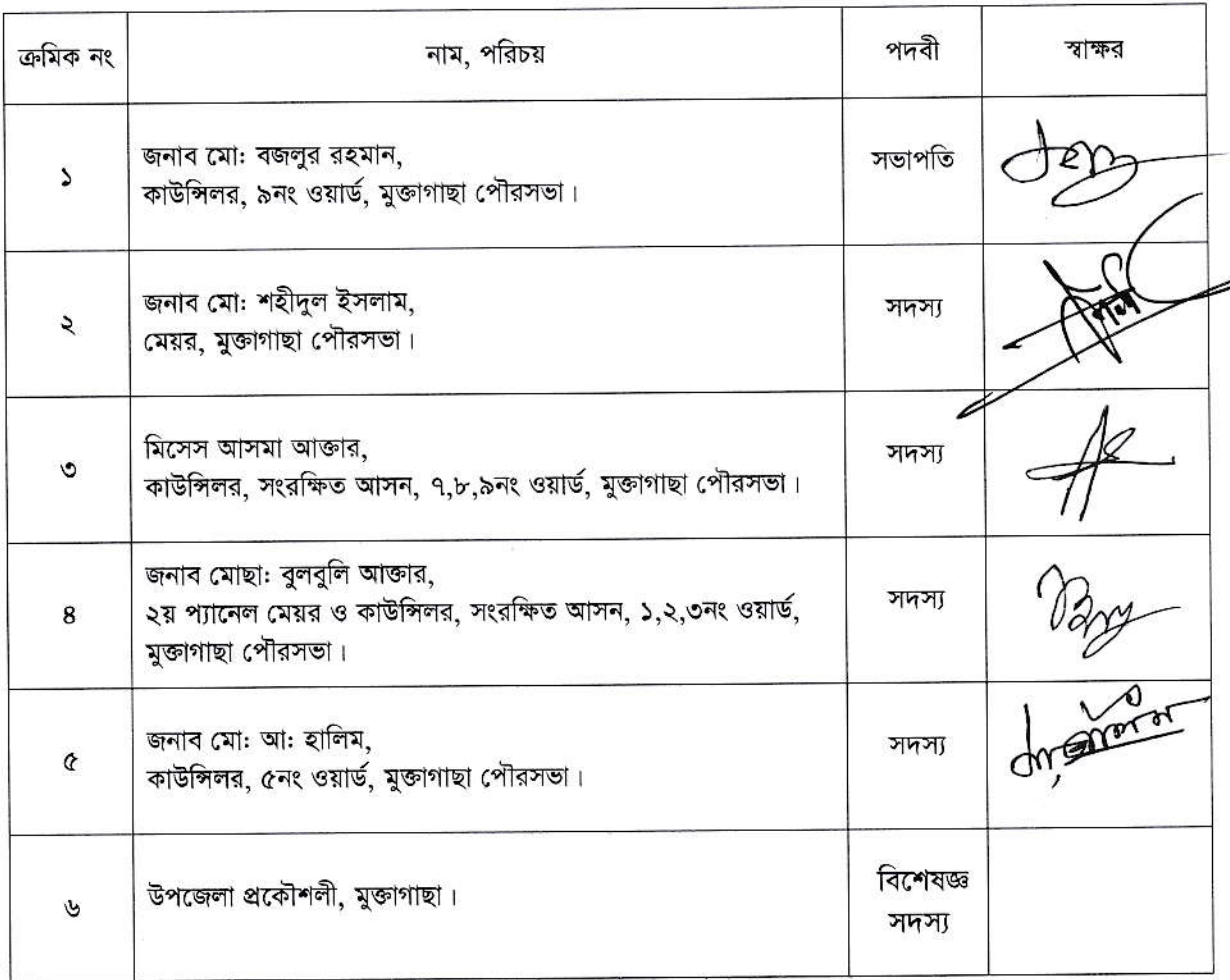 ক্রমিক নং নাম, পরিচয় পদবী স্বাক্ষর
১ জনাব মো: বজলুর রহমান, সভাপতি
কাউন্সিলর, ৯নং ওয়ার্ড, মুক্তাগাছা পৌরসভা।
২ জনাব মো: শহীদুল ইসলাম, সদস্য
মেয়র, মুক্তাগাছা পৌরসভা।
৩ মিসেস আসমা আক্তার, সদস্য
কাউন্সিলর, সংরক্ষিত আসন, ৭,৮,৯নং ওয়ার্ড, মুক্তাগাছা পৌরসভা।
৪ জনাব মোছা: বুলবুলি আক্তার, সদস্য
২য় প্যানেল মেয়র ও কাউন্সিলর, সংরক্ষিত আসন, ১,২,৩নং ওয়ার্ড,
মুক্তাগাছা পৌরসভা।
৫ জনাব মো: আ: হালিম, সদস্য
কাউন্সিলর, ৫নং ওয়ার্ড, মুক্তাগাছা পৌরসভা।
৬ উপজেলা প্রকৌশলী, মুক্তাগাছা। বিশেষজ্ঞ
সদস্য